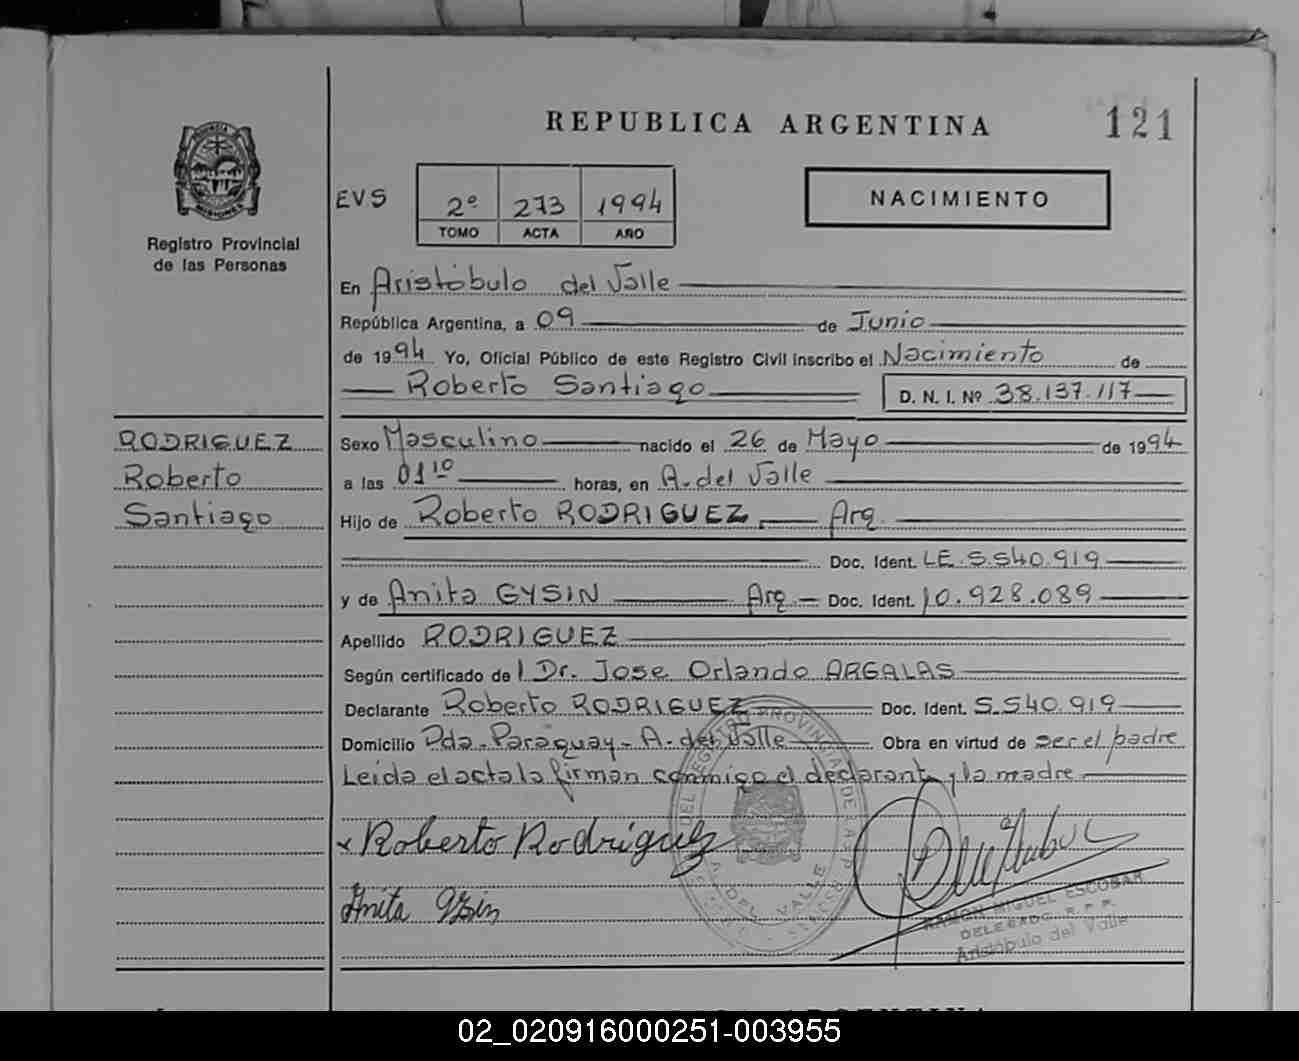 REPUBLICA ARGENTINA
121
PROVINCIA DE
MISIONES
Registro Provincial
de las Personas
EVS
2º 273 1994
TOMO ACTA AÑO
NACIMIENTO
En Aristóbulo del Valle
República Argentina, a 09 de Junio
de 1994 Yo, Oficial Público de este Registro Civil inscribo el Nacimiento de
Roberto Santiago D. N. I. Nº 38.137.117
RODRIGUEZ
Roberto
Santiago
Sexo Masculino nacido el 26 de Mayo de 1994
a las 01 10 horas, en A. del Valle
Hijo de Roberto RODRIGUEZ, Arg.
Doc. Ident. LE. 5.540.919
y de Anita GYSIN Arg. Doc. Ident. 10.928.089
Apellido RODRIGUEZ
Según certificado de l Dr. Jose Orlando ARGALAS
Declarante Roberto RODRIGUEZ Doc. Ident. 5.540.919
Domicilio Pda. Paraguay - A. del Valle Obra en virtud de ser el padre
Leida el acta la firman conmigo el declarant y la madre
Roberto Rodriguez
Anita Gysin
DEL REGISTRO PROVINCIAL DE LAS
A. DEL VALLE
RAMON MIGUEL ESCOBAR
DELEGADO R.P.P.
Aristóbulo del Valle
02_020916000251-003955